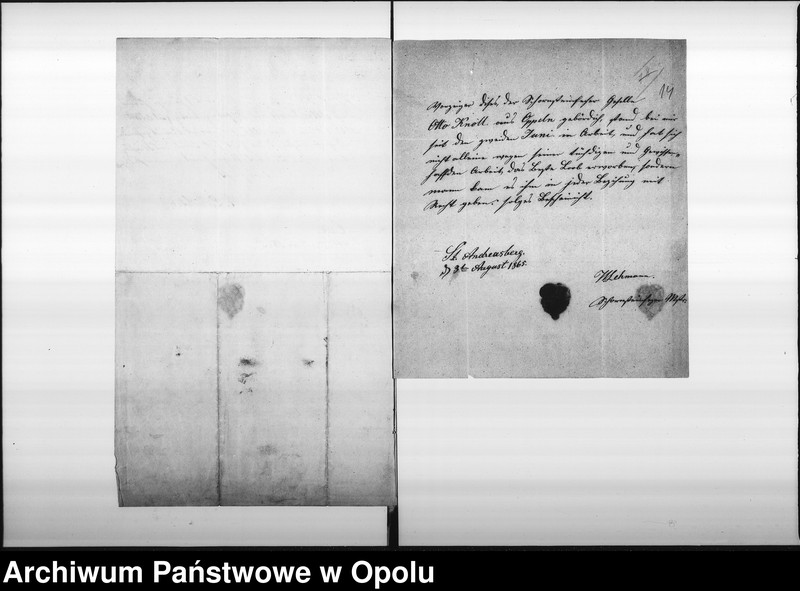 14
Vorzeiger dises der Schornsteinfeger Geselle
Otto Knoll aus Oppeln gebürdich, stand bei mir
seit den zweiden Juni in Arbeit, und hat sich
nicht alleine wegen seiner düchdigen und
Arbeit, das Beste Lob erworben, sondern
mann kan es ihm in jeder Bezihung mit
Recht geben. solches Bescheinicht.
St. Andreasberg.
d 3te August 1865.
W. Lehmann.
Schornsteinfeger Mstr.
Archiwum Państwowe w Opolu